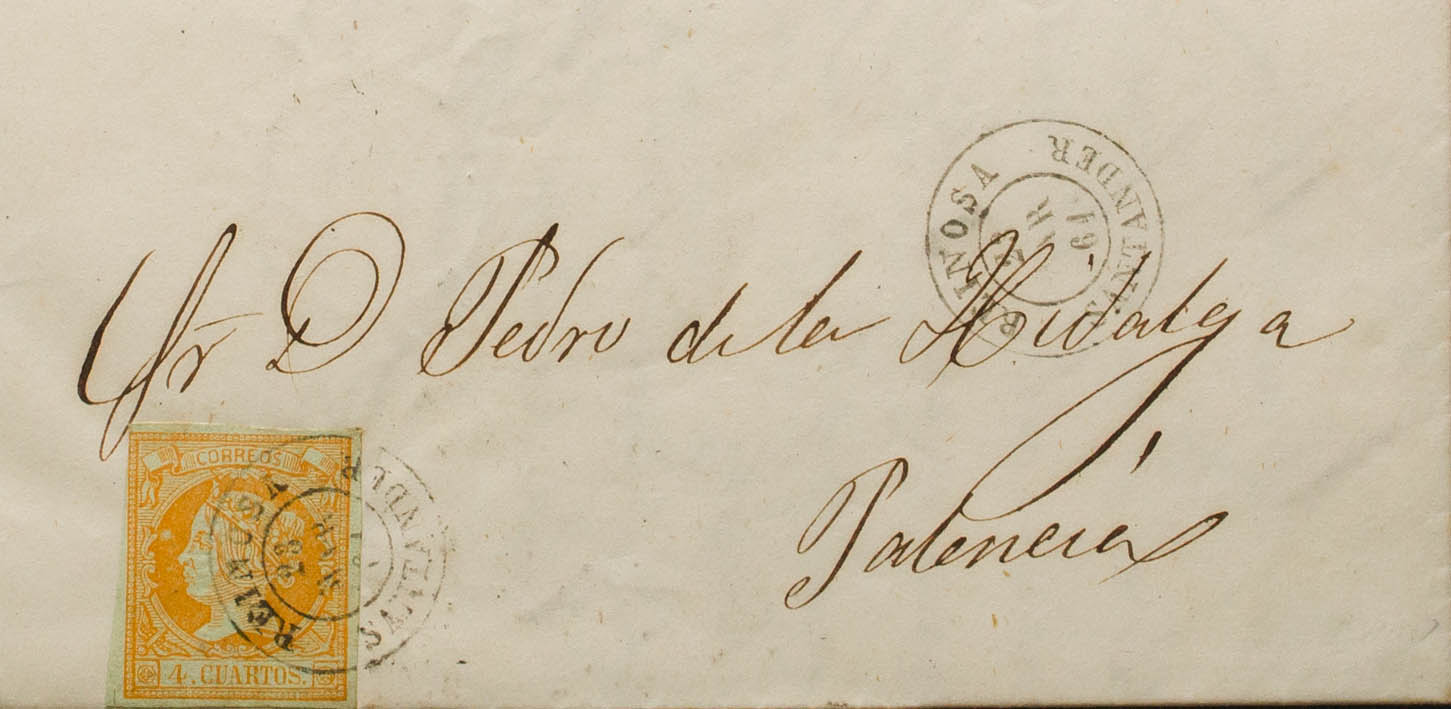 REINOSA · SANTANDER
23
MAR
61
Sr D Pedro de la Hidalga
Palencia
CORREOS
4. CUARTOS.
REINOSA SANTANDER
23
MAR